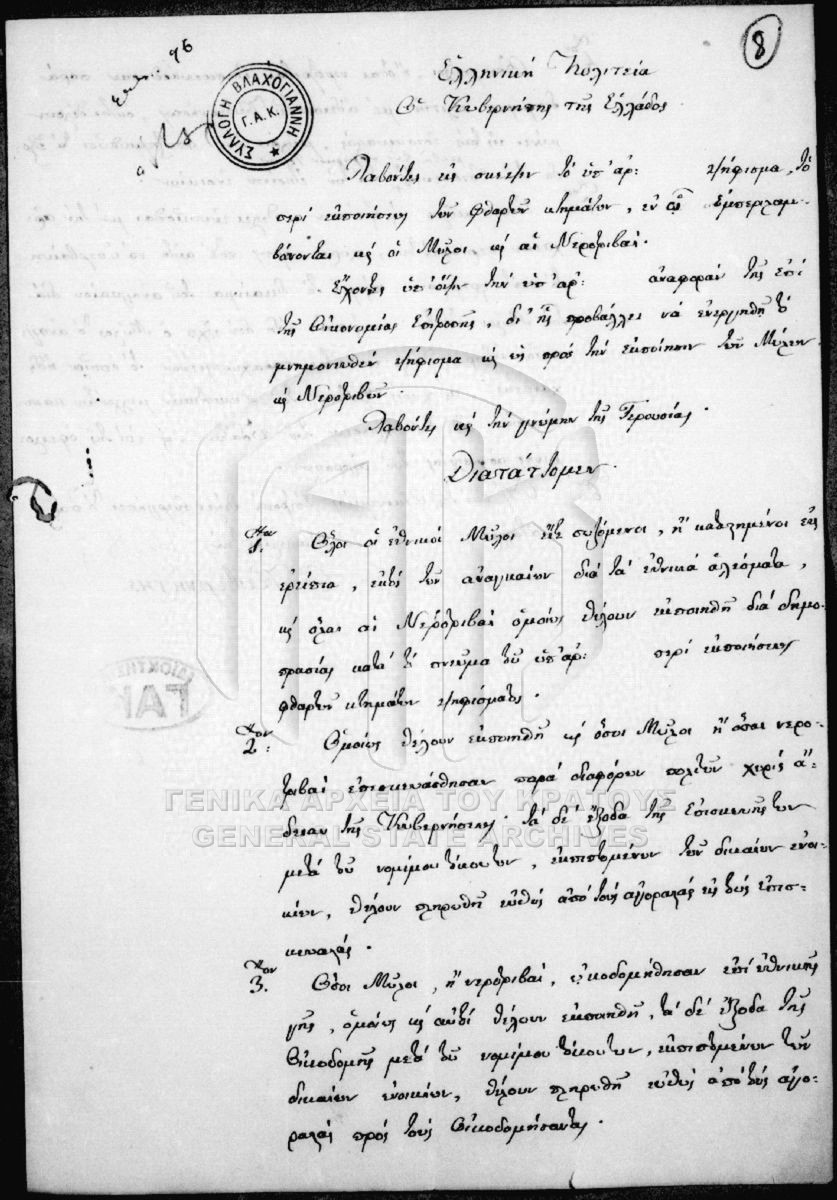 8
ΣΥΛΛΟΓΗ ΒΛΑΧΟΓΙΑΝΝΗ
Γ.Α.Κ.
Ἑλληνική Πολιτεία
Ὁ Κυβερνήτης τῆς Ἑλλάδος.
Λαβόντες εἰς σκέψιν τό ὑπ' ἀρ: ψήφισμα, τό
περί ἐκποιήσεως τῶν φθαρτῶν κτημάτων, ἐν οἷς ἐμπεριλαμ-
βάνονται καί οἱ Μῦλοι καί αἱ Νεροτριβαί.
Ἔχοντες ὑπ' ὄψιν τήν ὑπ' ἀρ: ἀναφοράν τῆς ἐπί
τῆς Οἰκονομίας Ἐπιτροπῆς, δι' ἧς προβάλλει νά ἐνεργηθῇ τό
μνημονευθέν ψήφισμα ὡς πρός τήν ἐκποίησιν τῶν Μύλων
καί Νεροτριβῶν.
Λαβόντες καί τήν γνώμην τῆς Γερουσίας.
Διατάττομεν.
1. Ὅλοι οἱ ἐθνικοί Μῦλοι εἴτε σωζόμενοι, ἤ κατηντημένοι εἰς
ἐρείπια, ἐκτός τῶν ἀναγκαίων διά τά ἐθνικά ἀλέσματα,
καί ὅλαι αἱ Νεροτριβαί ὁμοίως θέλουν ἐκποιηθῆ διά δημο-
πρασίας κατά τό πνεῦμα τοῦ ὑπ' ἀρ: περί ἐκποιήσεως
φθαρτῶν κτημάτων ψηφίσματος.
2: Ὁμοίως θέλουν ἐκποιηθῆ καί ὅσοι Μῦλοι ἤ ὅσαι νερο-
τριβαί ἐπισκευάσθησαν παρά διαφόρων πολιτῶν χωρίς ἄ-
δειαν τῆς Κυβερνήσεως. τά δέ ἔξοδα τῆς ἐπισκευῆς των
μετά τοῦ νομίμου τόκου των, ἐκπιπτομένων τῶν δικαίων ἐνοι-
κίων, θέλουν πληρωθῆ εὐθύς ἀπό τούς ἀγοραστάς εἰς τούς ἐπισ-
κευαστάς.
3. Ὅσοι Μῦλοι, ἤ νεροτριβαί, οἰκοδομήθησαν ἐπί ἐθνικῆς
γῆς, ὁμοίως καί αὐτοί θέλουν ἐκποιηθῆ, τά δέ ἔξοδα τῆς
Οἰκοδομῆς μετά τοῦ νομίμου τόκου των, ἐκπιπτομένων τῶν
δικαίων ἐνοικίων, θέλουν πληρωθῆ εὐθύς ἀπό τούς ἀγο-
ραστάς πρός τούς Οἰκοδομήσαντας.
ΓΕΝΙΚΑ ΑΡΧΕΙΑ ΤΟΥ ΚΡΑΤΟΥΣ
GENERAL STATE ARCHIVES